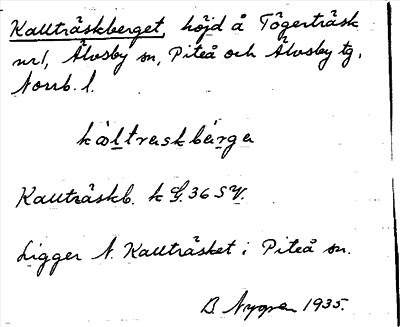 Kallträskberget, höjd å Tögerträsk
nr 1, Älvsby sn, Piteå och Älvsby tg,
Norrb. l.
kàltrȧskbèrgȧ
Kallträskb. k G. 36 SV.
Ligger N. Kallträsket i Piteå sn.
B Nygren 1935.